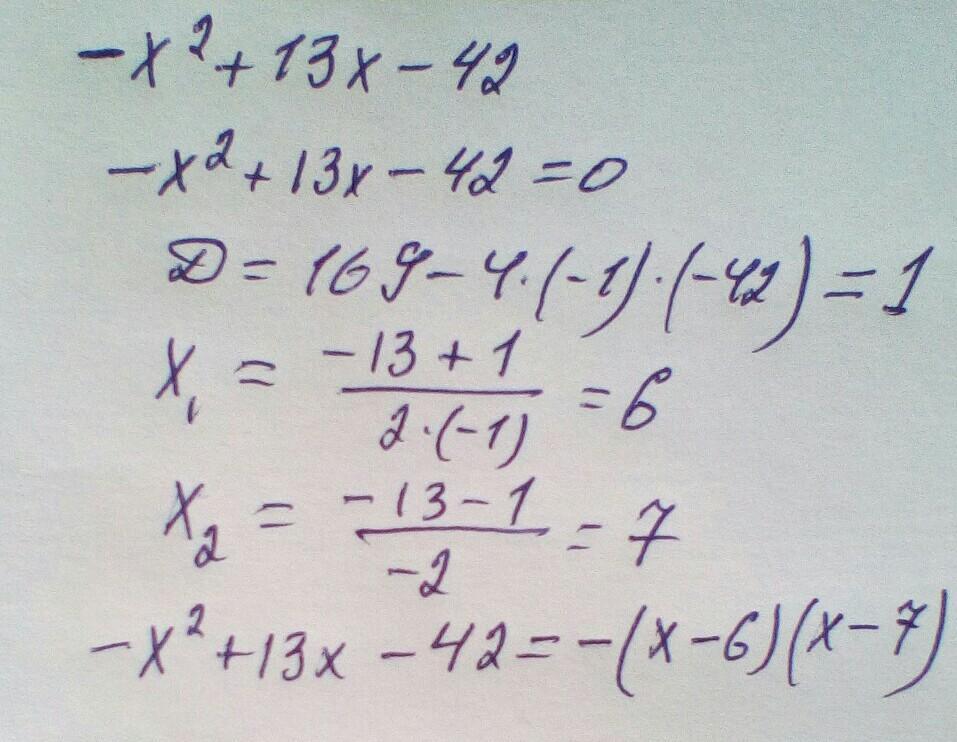 -x² + 13x - 42
-x² + 13x - 42 = 0
D = 169 - 4·(-1)·(-42) = 1
x₁ = (-13 + 1)/(2·(-1)) = 6
x₂ = (-13 - 1)/(-2) = 7
-x² + 13x - 42 = -(x - 6)(x - 7)